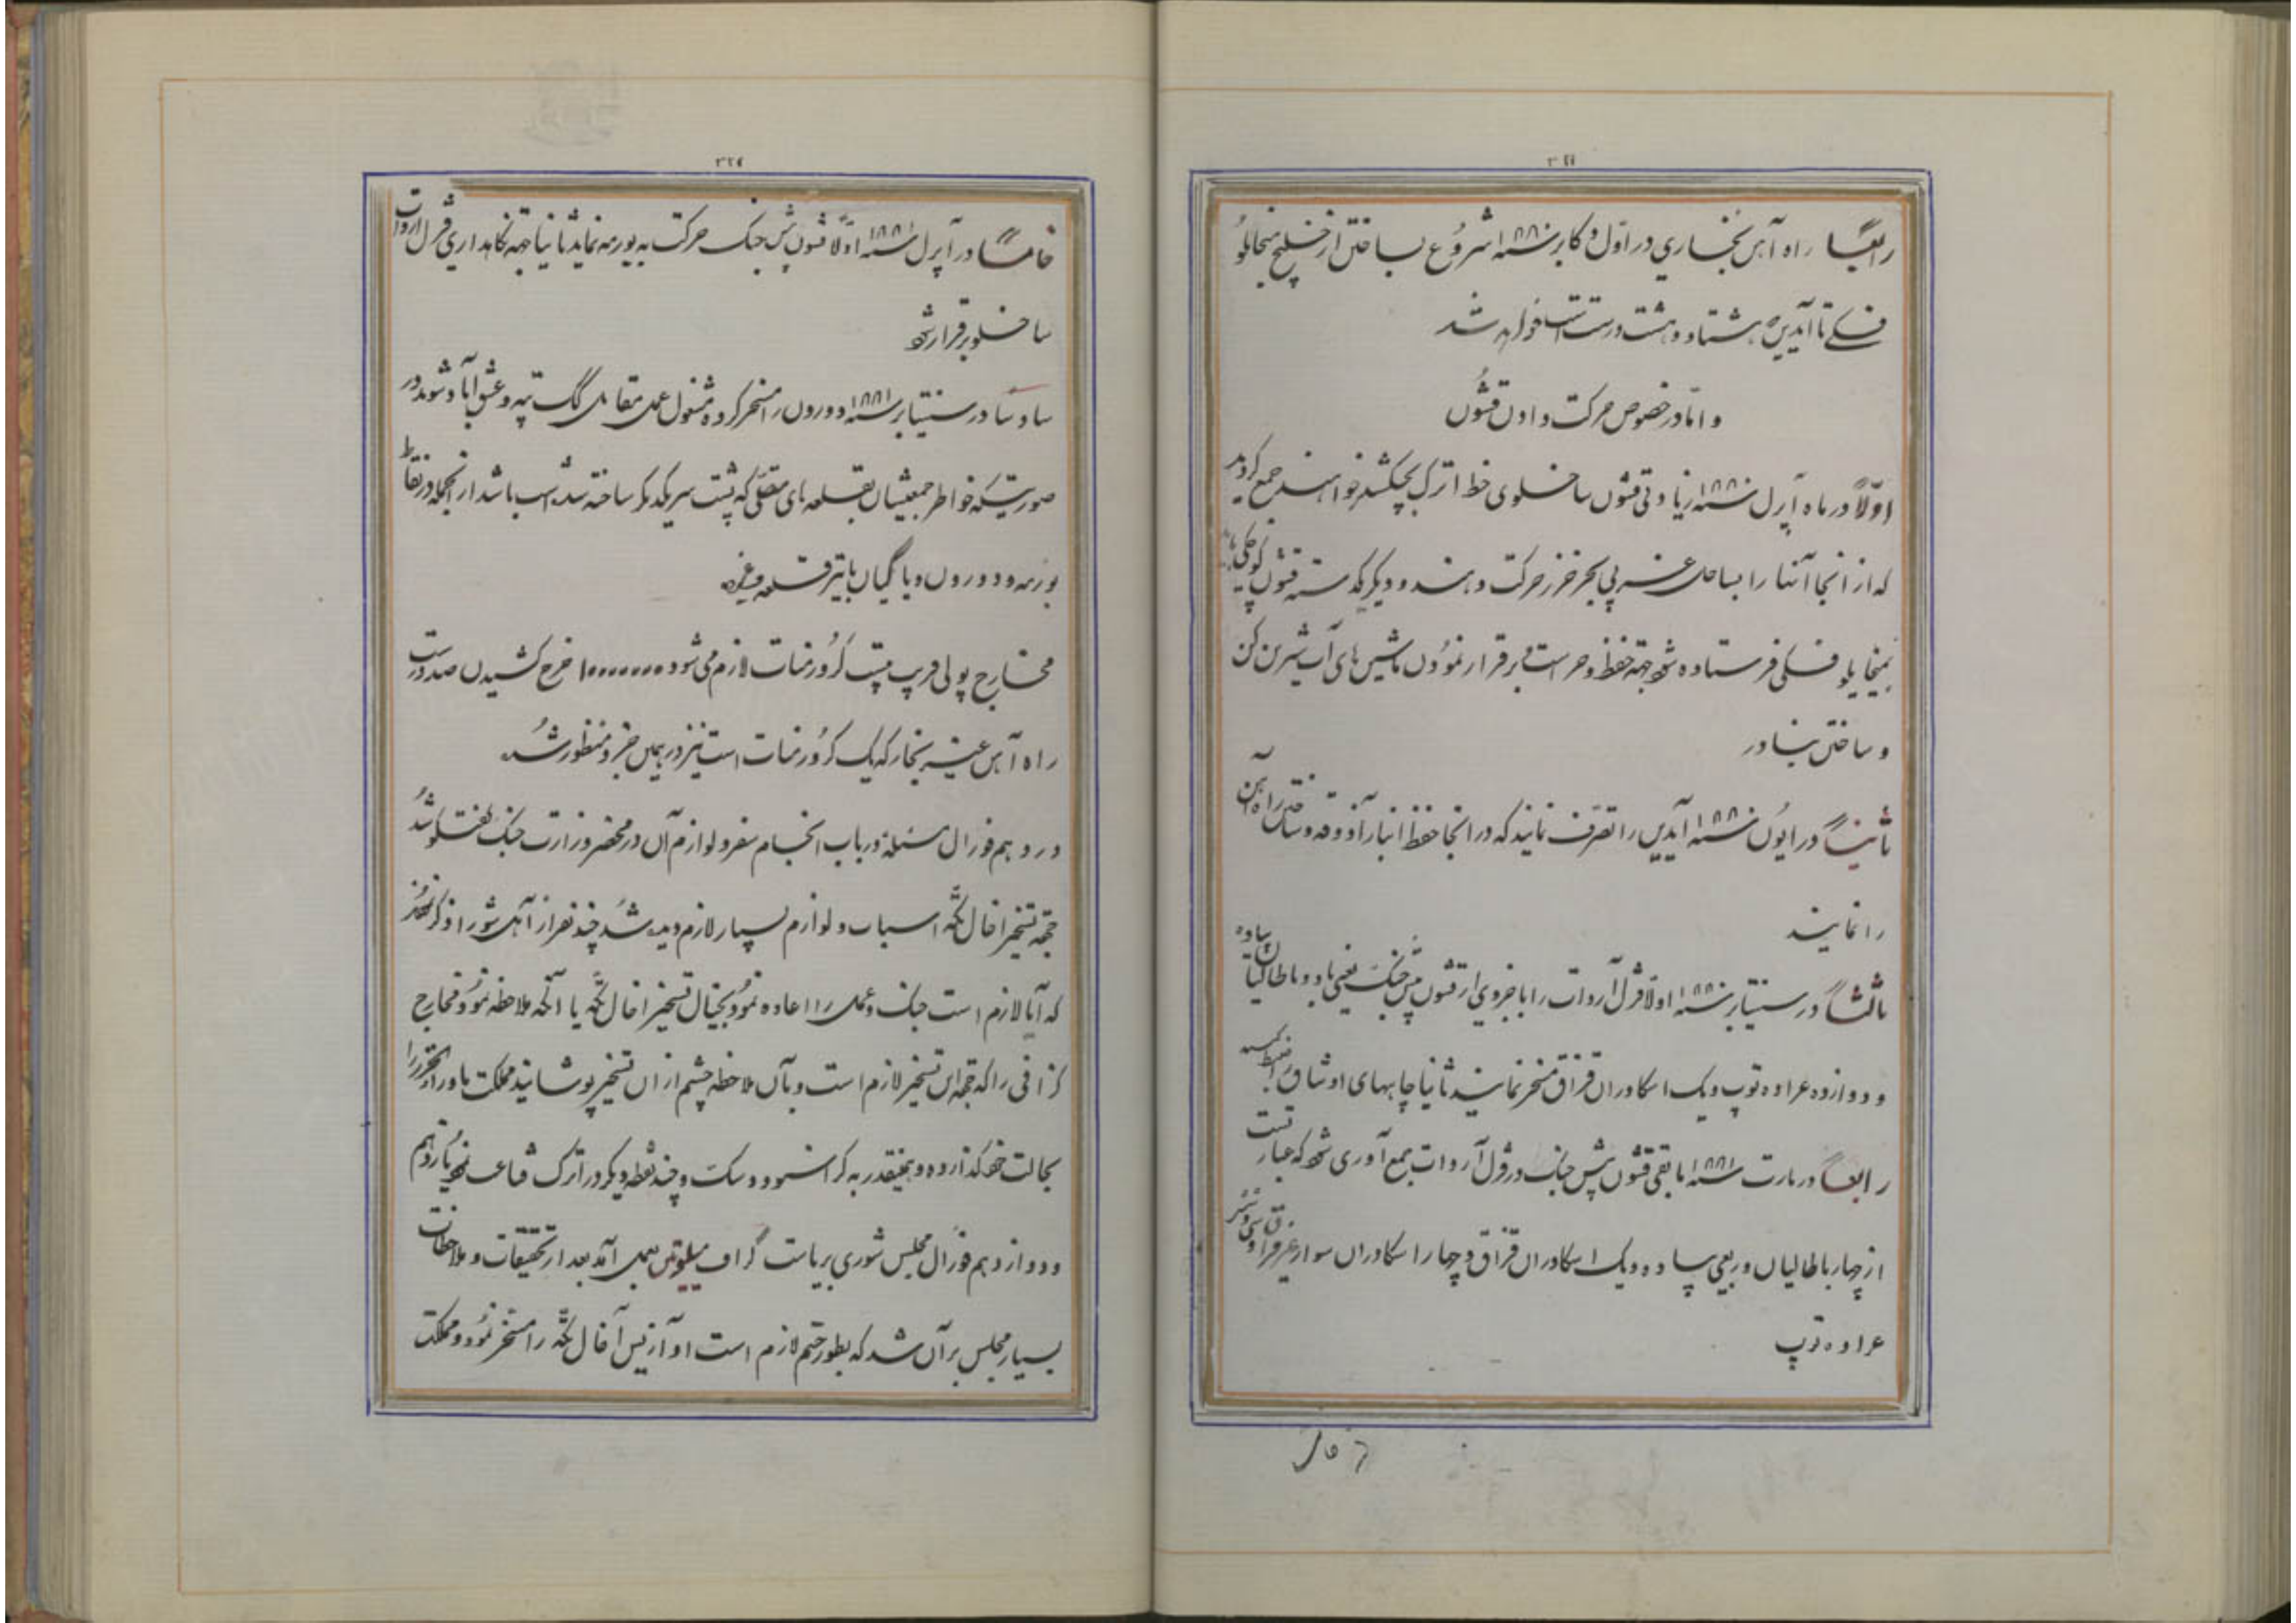 ۳۲۶
رابعاً راه آهن بخاری در اول دکابر سنه ۱۸۸۰ شروع بساختن از خلیج میخایلو
فسکی تا آیدین هشتاد و هشت ورست است خواهد شد
و امّا در خصوص حرکت دادن قشون
اوّلاً در ماه آپرل سنه ۱۸۸۰ زیادتی قشون ساخلوی خط اترک بچکشلر خواهند جمع گردید
که از انجا آنها را بساحل غربی بحر خزر حرکت دهند و دیگر یکدسته قشون کوچکی باید
بمیخایلوفسکی فرستاده شود جهة حفظ و حراست و برقرار نمودن ماشین های آب شیرین کن
و ساختن بنادر
ثانیاً در ایون سنه ۱۸۸۰ آیدین را تصرف نمایند که در انجا حفظ انبار آذوقه و ساختن راه آهن
را نمایند
ثالثاً در سنتیابر سنه ۱۸۸۰ اولا قزل آروات را با جزوی از قشون پیش جنگ یعنی با دو باطالیان پیاده
و دوازده عراده توپ و یک اسکادران قزاق مسخر نمایند ثانیا چاههای اوشاق را ضبط کنند
رابعاً در مارت سنه ۱۸۸۱ مابقی قشون پیش جنگ در قزل آروات جمع آوری شود که عبارتست
از چهار باطالیان و ربعی پیاده و یک اسکادران قزاق و چهار اسکادران سوار غیر قزاق و سی و شش
عراده توپ
۳۲۷
خامساً در آپرل سنه ۱۸۸۱ اوّلا قشون پیش جنگ حرکت به بورمه نماید ثانیا جهة نگاهداری قزل اروات
ساخلو برقرار شود
سادسا در سنتیابر سنه ۱۸۸۱ دورون را مسخر کرده مشغول عمل مقابل گک تپه و عشق آباد شوند در
صورتیکه خواطر جمعیشان بقلعه های متصلی که پشت سر یکدیگر ساخته شده است باشد از انجمله در نقاط
بورمه و دورون و یا گیان باتیر قلعه و غیره
مخارج پولی قریب بیست کرور منات لازم می شود ۱۰۰۰۰۰۰۰ خرج کشیدن صد ورست
راه آهن غیر بخار که یک کرور منات است نیز در همین جزو منظور شد
در دهم فورال مسئله در باب انجام سفر و لوازم آن در محضر وزارت جنگ گفتگو شد
جهة تسخیر اخال تکه اسباب و لوازم بسیار لازم دیده شد چند نفر از اهل شورا ذکر نمودند
که آیا لازم است جنگ و عمل را اعاده نمود بخیال تسخیر اخال تکه یا آنکه ملاحظه نمود مخارج
گزافی را که جهة این تسخیر لازم است و بآن ملاحظه چشم از ان تسخیر پوشانید مملکت ماوراء الخزر را
بحالت خود گذارده و همینقدر به کراسنوودسک و چند نقطه دیگر در اترک قناعت نمود یا در نهم
و دوازدهم فورال مجلس شوری بریاست گراف میلیوتین بعمل آمد بعد از تحقیقات و ملاحظات
بسیار مجلس بر آن شد که بطور حتم لازم است او آزیس آخال تکه را مسخر نمود و مملکت